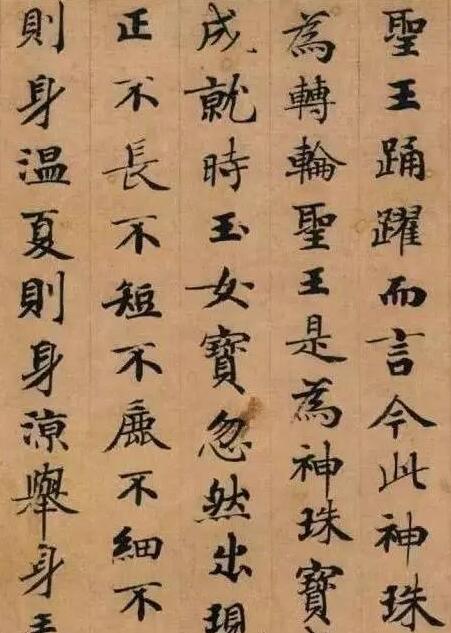 聖王踊躍而言今此神珠
為轉輪聖王是為神珠寶
成就時玉女寶忽然出現
正不長不短不麁不細不
則身温夏則身涼舉身毛